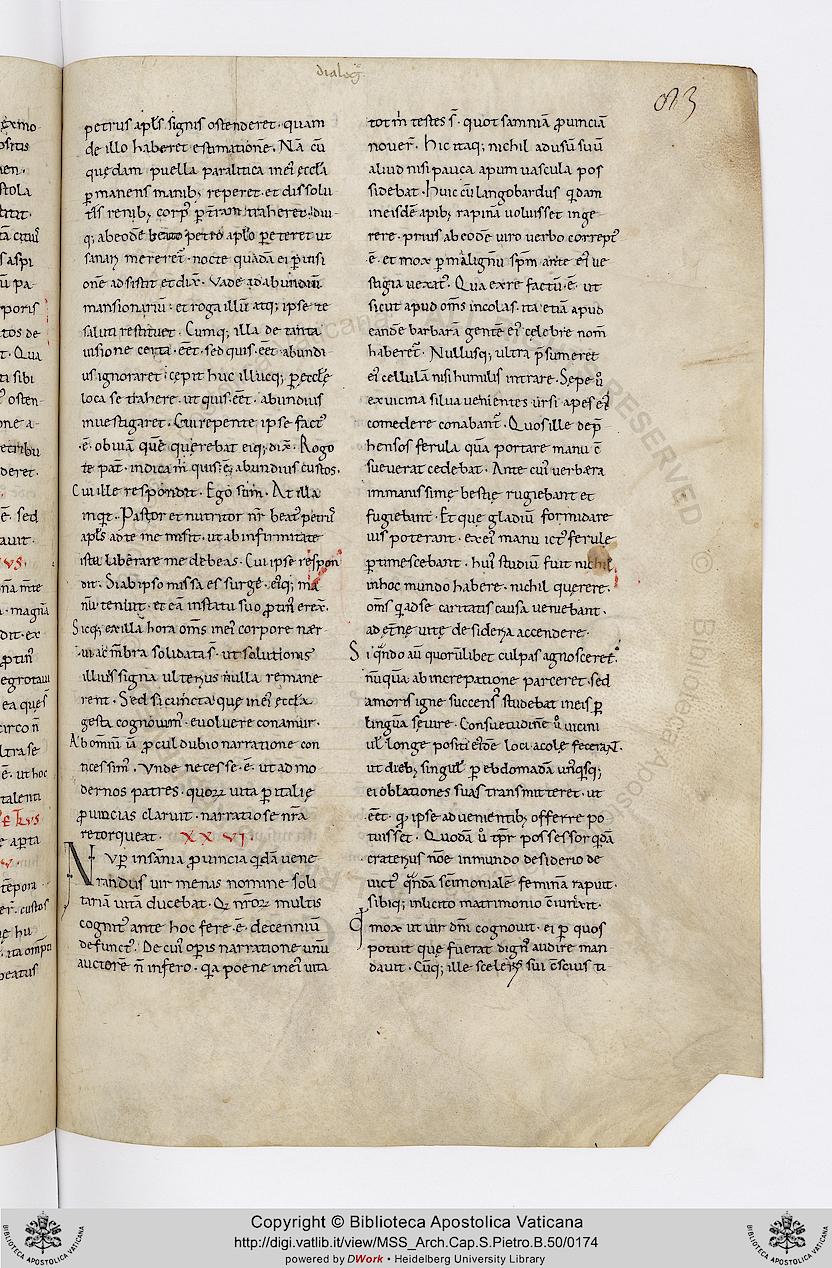 dialog̅
petrus ap̅ls signis ostenderet · quam
de illo haberet estimatione̅ . Na̅ cu̅
quędam puella paralitica inei᾿ ęccl̅a
ꝑmanens manib; reperet · et dissolu
tis renib; corp᾿ ꝑ t̅ram traheret · diu-
q; abeode̅ beato petro ap̅lo peteret ut
sanari mereret᾿ · nocte quada̅ ei ꝑ uisi
one̅ adsistit et dix̅ . Vade ad abundiu̅
mansionariu̅ · et roga illu̅ atq; ipse te
saluti restituet . Cumq; illa de tanta
uisione certa · ee̅t · sed quis · ee̅t abundi
us ignoraret · cepit huc illucq; ꝑ ęccl̅e
loca se trahere · ut quis · ee̅t · abundius
inuestigaret . Cui repente ipse fact᾿
· e̅ · obuia̅ que̅ querebat eiq; dix̅ . Rogo
te pat̅ · indica m̅ quis · e̅ · abundius custos .
Cui ille respondit . Ego sum . At illa
inqt . Pastor et nutritor nr̅ beat᾿ petrus
ap̅ls ad te me misit · ut ab infirmitate
ista liberare me debeas . Cui ipse respon
dit . Si ab ipso missa es surge · eiq; ma
nu̅ tenuit · et ea̅ instatu suo ꝓtin᾿ erex̅ .
Sicq; ex illa hora om̅s inei᾿ corpore ner-
ui ac me̅bra solidata s̅ · ut solutionis
illius signa ulterius nulla remane
rent . Sed si cuncta que inei᾿ ęccl̅a
gesta cognouim᾿ · euoluere conamur ·
Ab om̅iu̅ ia̅ ꝓcul dubio narratione con
ticescim᾿ . Vnde necesse · e̅ · ut ad mo
dernos patres · quoꝝ uita ꝑ italię
ꝓuincias claruit · narratio se nr̅a
retorqueat . XXVI .
Nvper insa̅nia ꝓuincia qda̅ uene
randus uir menas nomine soli
taria̅ uita̅ ducebat . Q nr̅oꝝ multis
cognit᾿ ante hoc fere · e̅ · decenniu̅
defunct᾿ . De cui᾿ opis narratione unu̅
auctore̅ n̅ infero · qa poene inei᾿ uita
tot m̅ testes s̅ · quot samnia̅ ꝓuincia̅
nouer̅ . Hic itaq; nichil adusu̅ suu̅
aliud nisi pauca apum uascula pos
sidebat . Huic cu̅ langobardus qdam
ineisde̅ apib; rapina̅ uoluisset inge
rere · prius ab eode̅ uiro uerbo corrept᾿
· e̅ · et mox ꝑ malignu̅ sp̅m ante ei᾿ ue
stigia uexat᾿ . Qua ex re factu̅ · e̅ · ut
sicut apud om̅s incolas · ita etia̅ apud
eande̅ barbara̅ gente̅ ei᾿ celebre nom̅
haberet᾿ . Nullusq; ultra p̅sumeret
ei᾿ cellula̅ nisi humilis intrare . Sepe u̅
ex uicina silua uenientes ursi apes ei᾿
comedere conabant᾿ . Quos ille dep̅
hensos ferula qua̅ portare manu c̅
sueuerat cedebat . Ante cui᾿ uerbera
immanissimę bestię rugiebant et
fugiebant . Et que gladiu̅ formidare
uix poterant · ex ei᾿ manu ict᾿ ferulę
ꝑtimescebant . hui᾿ studiu̅ fuit nichil
inhoc mundo habere · nichil querere ·
om̅s q adse caritatis causa ueniebant ·
ad et̅nę uitę desideria accendere ·
Si qn̅do au̅ quoru̅libet culpas agnosceret ·
nu̅qua̅ ab increpatione parceret · sed
amoris igne succens᾿ studebat ineis ꝑ
lingua̅ seuire . Consuetudine̅ u̅ uicini
ul̅ longe positi ei᾿de̅ loci acolę fecerant .
ut dieb; singul᾿ ꝑ ebdomada̅ unqsq;
ei oblationes suas transmitteret · ut
ee̅t · q ipse aduenientib; offerre po
tuisset . Quoda̅ u̅ tp̅r possessor qda̅
craterius no̅e inmundo desiderio de
uict᾿ qn̅da̅ sc̅imoniale̅ femina̅ rapuit ·
sibiq; inlicito matrimonio c̅iunxit ·
Q mox ut uir dn̅i cognouit · ei ꝑ quos
potuit quę fuerat dign᾿ audire man
dauit . Cu̅q; ille sceleris sui c̅scius ti-
Copyright © Biblioteca Apostolica Vaticana
http://digi.vatlib.it/view/MSS_Arch.Cap.S.Pietro.B.50/0174
powered by DWork • Heidelberg University Library